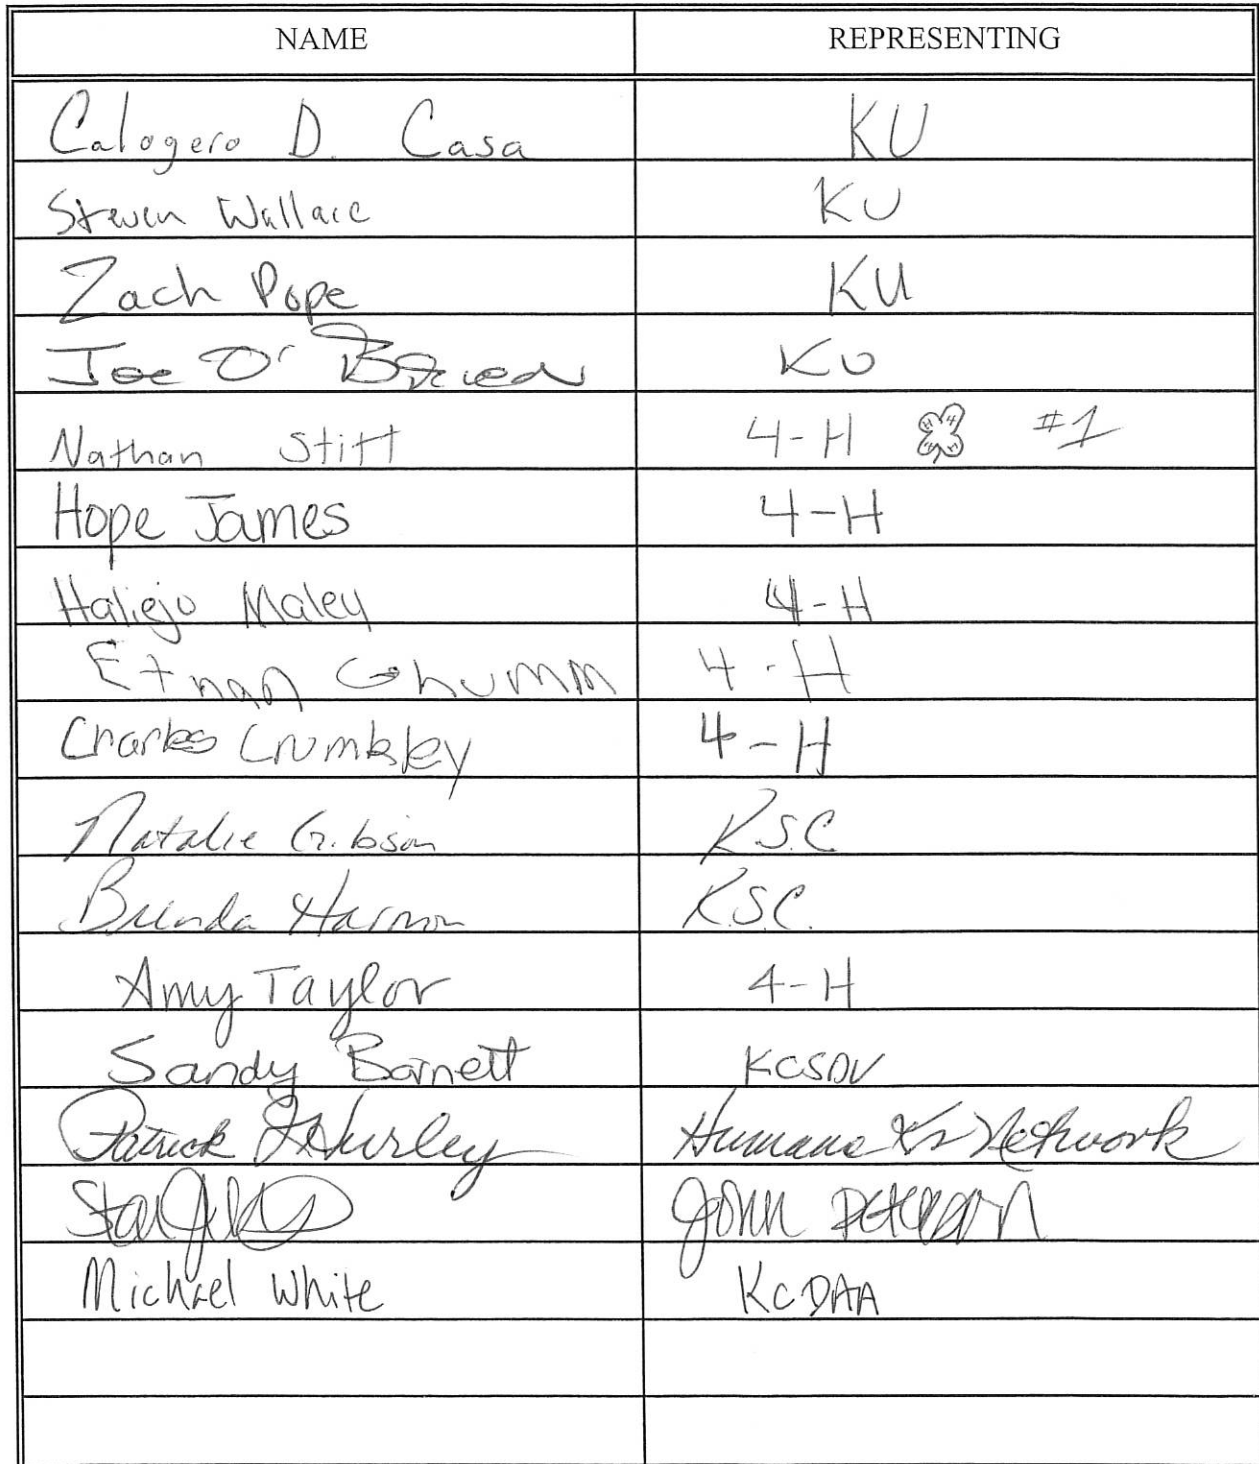 NAME REPRESENTING
Calogero D. Casa KU
Steven Wallace KU
Zach Pope KU
Joe O'Brien KU
Nathan Stitt 4-H #1
Hope James 4-H
Haliejo Maley 4-H
Ethan Ghumm 4-H
Charles Crumbley 4-H
Natalie Gibson KSC
Brenda Harmon K.S.C.
Amy Taylor 4-H
Sandy Barnett KCSDV
Patrick Hurley Humane Ks Network
John Peterson
Michael White KCDAA